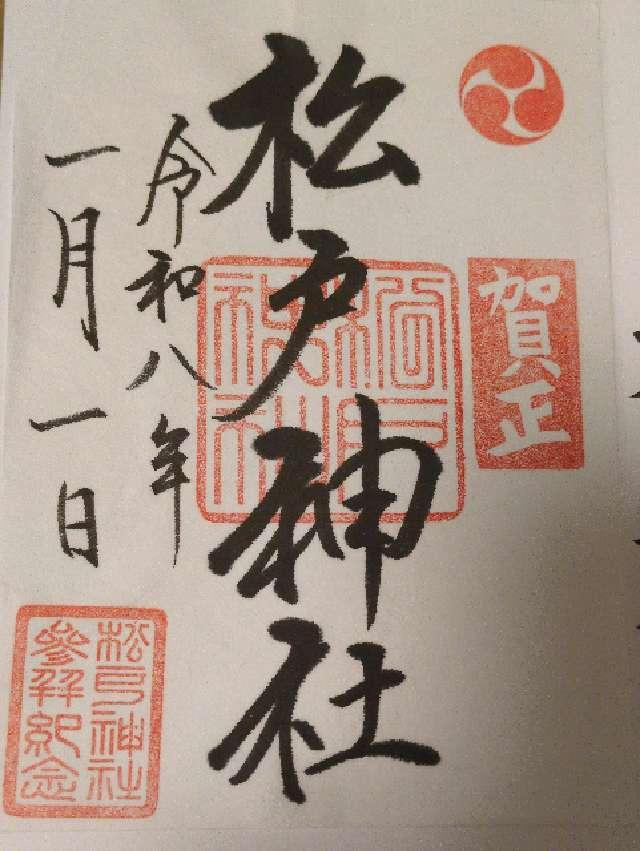 賀正
松戸神社
松戸神社
令和八年
一月一日
松戸神社
參拜紀念